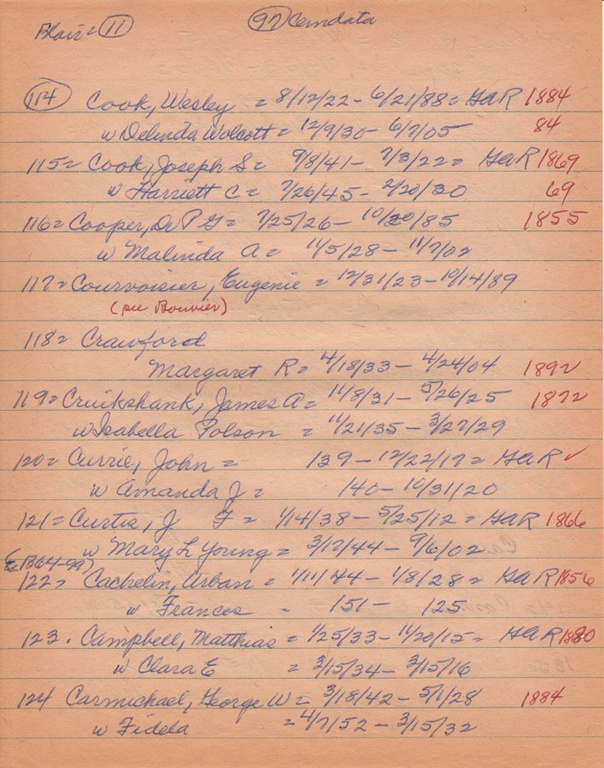 Blair = 11 97 Cemdata
114 Cook, Wesley = 8/12/22 - 6/21/88 = GaR 1884
w Delinda Wolcott = 12/9/30 - 6/7/05 84
115 = Cook, Joseph S = 9/8/41 - 7/3/22 = GaR 1869
w Harriett C = 7/26/45 - 2/20/30 69
116 = Cooper, Dr P G = 7/25/26 - 10/20/85 1855
w Malinda A = 11/5/28 - 11/7/02
117 = Courvoisier, Eugenie = 12/31/23 - 10/14/89
(see Bouvier)
118 = Crawford
Margaret R = 4/18/33 - 4/24/04 1892
119 = Cruikshank, James A = 11/8/31 - 5/26/25 1872
w Isabella Polson = 11/21/35 - 3/27/29
120 = Currie, John = 139 - 12/22/17 = GaR ✓
w Amanda J = 140 - 10/31/20
121 = Curtis, J F = 1/14/38 - 5/25/12 = GaR 1866
w Mary L Young = 3/12/44 - 9/6/02
122 = Cachelin, Urban = 1/11/44 - 1/8/28 = GaR 1856
w Frances - 151 - 125
123. Campbell, Matthias = 1/25/33 - 11/20/15 = GaR 1880
w Clara E = 3/15/34 - 3/15/16
124 Carmichael, George W = 3/18/42 - 5/1/28 1884
w Fidela = 4/7/52 - 3/15/32